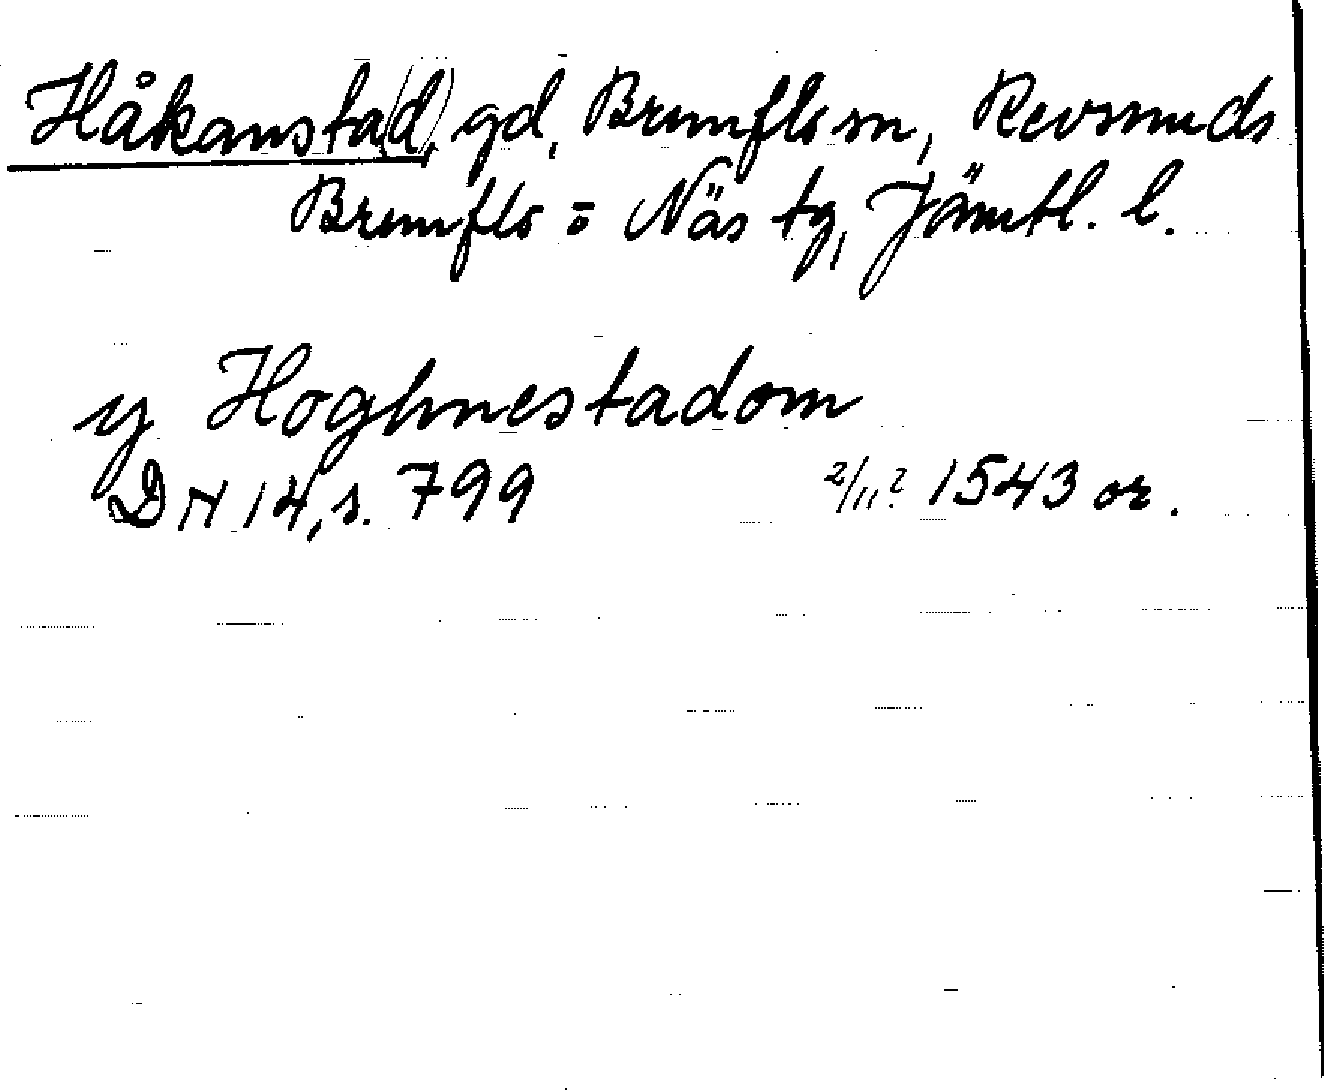 Håkansta(d), gd, Brunflo sn, Revsunds
Brunflo o Näs tg, Jämtl. l.
y Hoghnestadom
DN 14, s. 799 2/11? 1543 or.